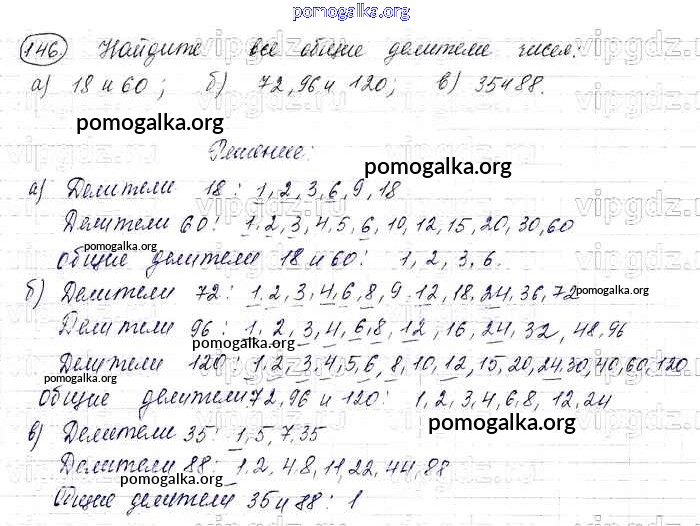 pomogalka.org
146. Найдите все общие делители чисел:
а) 18 и 60; б) 72, 96 и 120; в) 35 и 88.
pomogalka.org
Решение:
pomogalka.org
а) Делители 18: 1, 2, 3, 6, 9, 18
Делители 60: 1, 2, 3, 4, 5, 6, 10, 12, 15, 20, 30, 60
pomogalka.org
общие делители 18 и 60: 1, 2, 3, 6.
б) Делители 72: 1, 2, 3, 4, 6, 8, 9, 12, 18, 24, 36, 72
pomogalka.org
Делители 96: 1, 2, 3, 4, 6, 8, 12, 16, 24, 32, 48, 96
pomogalka.org
Делители 120: 1, 2, 3, 4, 5, 6, 8, 10, 12, 15, 20, 24, 30, 40, 60, 120
pomogalka.org
общие делители 72, 96 и 120: 1, 2, 3, 4, 6, 8, 12, 24
pomogalka.org
в) Делители 35: 1, 5, 7, 35
Делители 88: 1, 2, 4, 8, 11, 22, 44, 88
pomogalka.org
Общие делители 35 и 88: 1